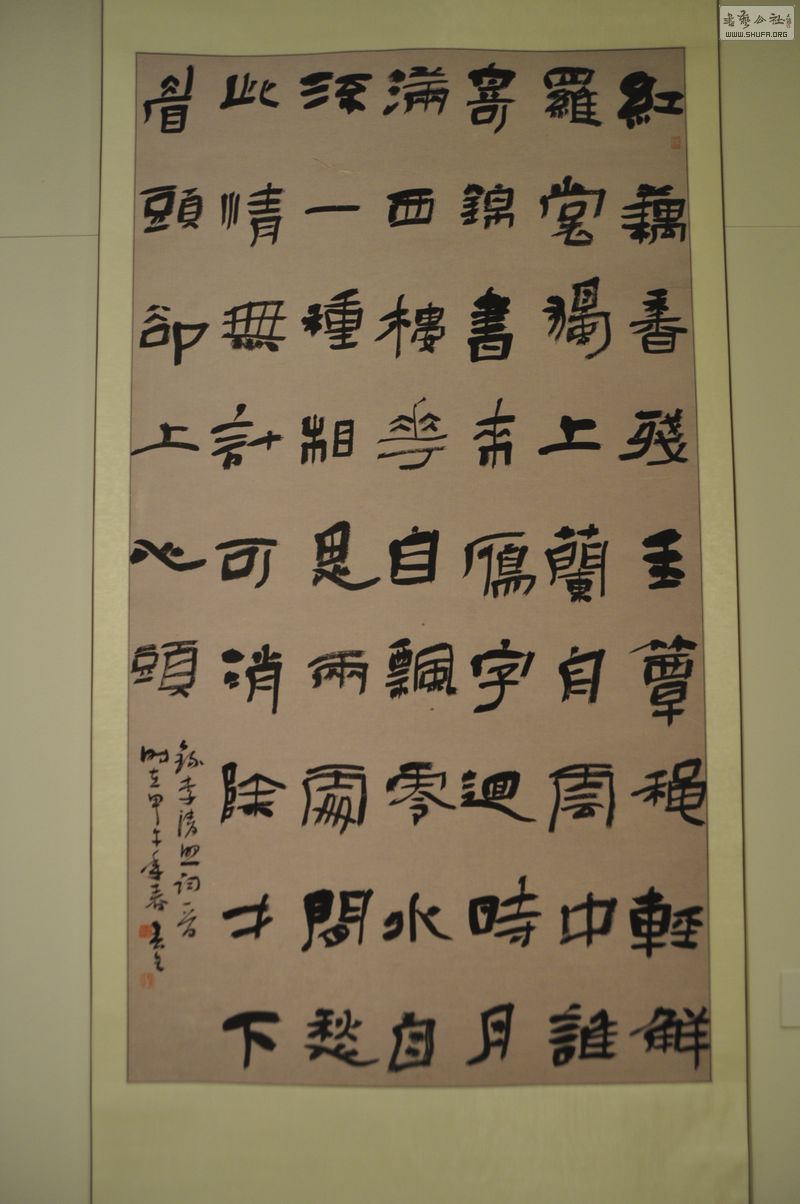 紅藕香殘玉簟穐輕解
羅裳獨上蘭舟雲中誰
寄錦書來鴈字迴時月
滿西樓花自飄零水自
流一種相思兩處間愁
此情無計可消除才下
眉頭卻上心頭
錄李清照詞一首
時在甲午年春
書藝公社
WWW.SHUFA.ORG